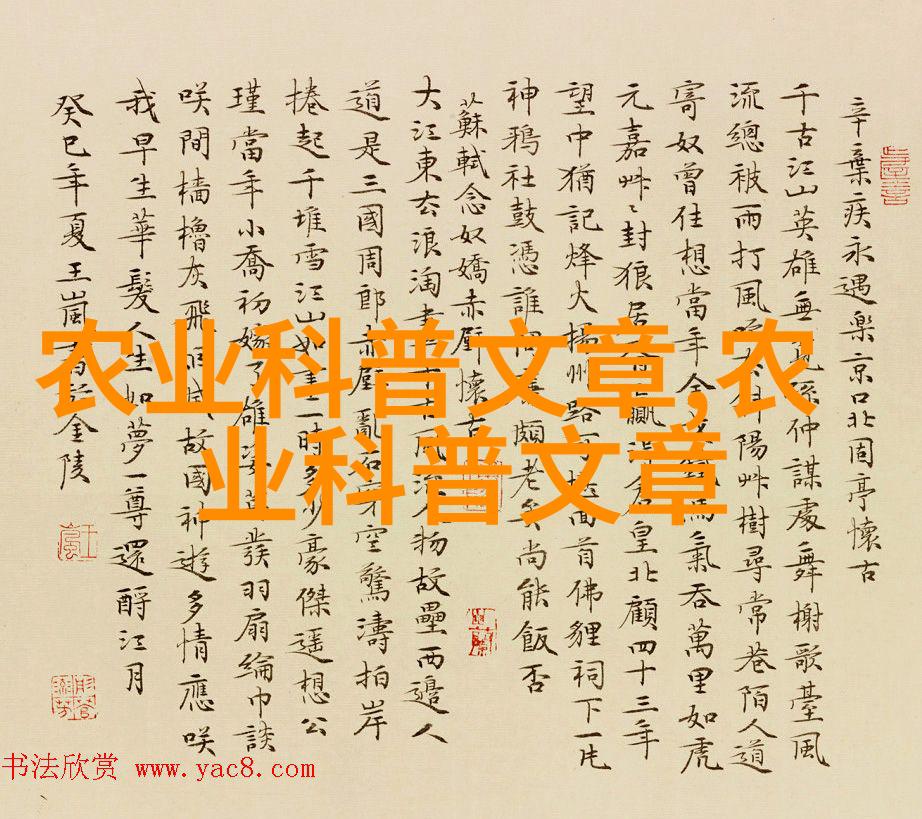 辛棄疾永遇楽京口北固亭懷古
千古江山英雄無覓孫仲謀處舞榭歌臺風
流總被雨打風吹去斜陽艸樹尋常巷陌人道
寄奴曾住想當年金戈鐵馬氣吞萬里如虎
元嘉艸艸封狼居胥贏得倉皇北顧四十三年
望中猶記烽火揚州路可堪回首佛貍祠下一片
神鴉社鼓憑誰問廉頗老矣尚能飯否
蘇軾念奴嬌赤壁懷古
大江東去浪淘盡千古風流人物故壘西邊人
道是三國周郎赤壁亂石穿空驚濤拍岸
捲起千堆雪江山如畫一時多少豪傑遥想公
瑾當年小喬初嫁了雄姿英發羽扇綸巾談
咲間檣櫓灰飛煙滅故國神遊多情應咲
我早生華髮人生如夢一尊還酹江月
癸巳年夏王嵐書於金陵
农业科普文章,农
业科普文章
书法欣赏 www.yac8.com